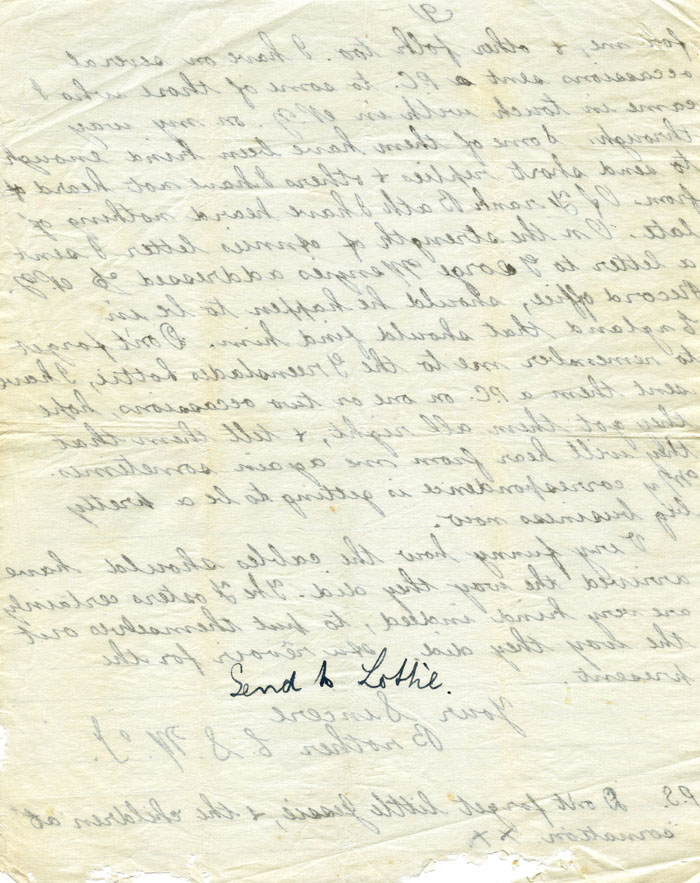 9
for me, & other folk too. I have on several
occassions sent a P.C. to some of those who I
came in touch with in N.Z. on my way
through. Some of them have been kind enough
to send short replies & others I have not heard
from. Of Frank Bath I have heard nothing of
late. On the strength of Annies letter I sent
a letter to George Menzies addressed to N.Z.
Record office, should he happen to be in
England that should find him. Don't forget
to remember me to the Greenslades Lottie, I have
sent them a P.C. on one or two occassions, hope
they got them all right, & tell them that
they will hear from me again sometimes.
My correspondence is getting to be a pretty
big business now.
Very funny how the cables should have
arrived the way they did. The Fosters certainly
are very kind indeed, to put themselves out
the way they did. Au revoir for the
present.
Send to Lottie.
Your Sincere
Brother L. S. W. J.
P.S. Don't forget little Jessie, & the children at
xx